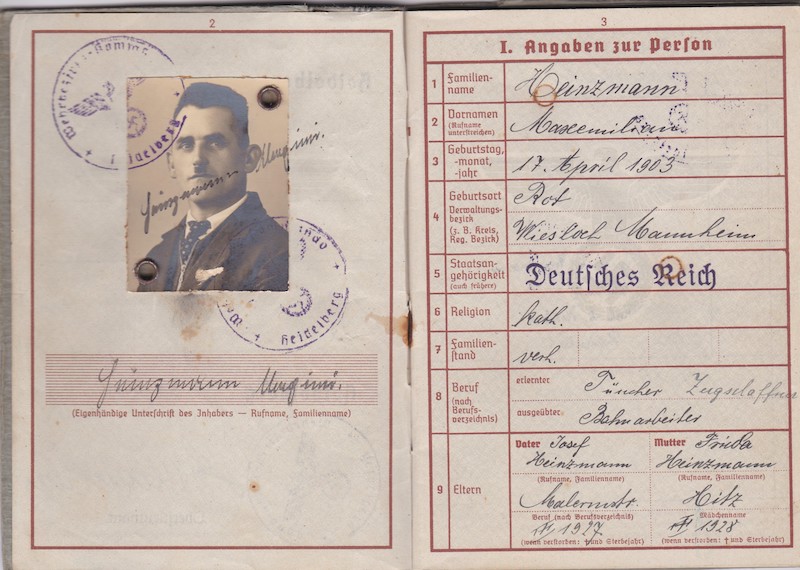 2
Wehrbezirks-Komman
Heidelberg
Heinzmann Maximi.
mando
Heidelberg
Heinzmann Maximi.
(Eigenhändige Unterschrift des Inhabers — Rufname, Familienname)
3
I. Angaben zur Person
1 Familien-
name
Heinzmann
2 Vornamen
(Rufname
unterstreichen)
Maxemilian
3 Geburtstag,
-monat,
-jahr
17. April 1903
4 Geburtsort
Verwaltungs-
bezirk
(z. B. Kreis,
Reg. Bezirk)
Rot
Wiesloch Mannheim
5 Staatsan-
gehörigkeit
(auch frühere)
Deutsches Reich
6 Religion
kath.
7 Familien-
stand
verh.
8 Beruf
(nach
Berufs-
verzeichnis)
erlernter Tüncher Zugschaffner
ausgeübter Bahnarbeiter
9 Eltern
Vater Josef
Heinzmann
(Rufname, Familienname)
Malermstr.
Beruf (nach Berufsverzeichnis)
† 1927
(wenn verstorben: † und Sterbejahr)
Mutter Frieda
Heinzmann
(Rufname, Familienname)
Hitz
Mädchenname
† 1928
(wenn verstorben: † und Sterbejahr)